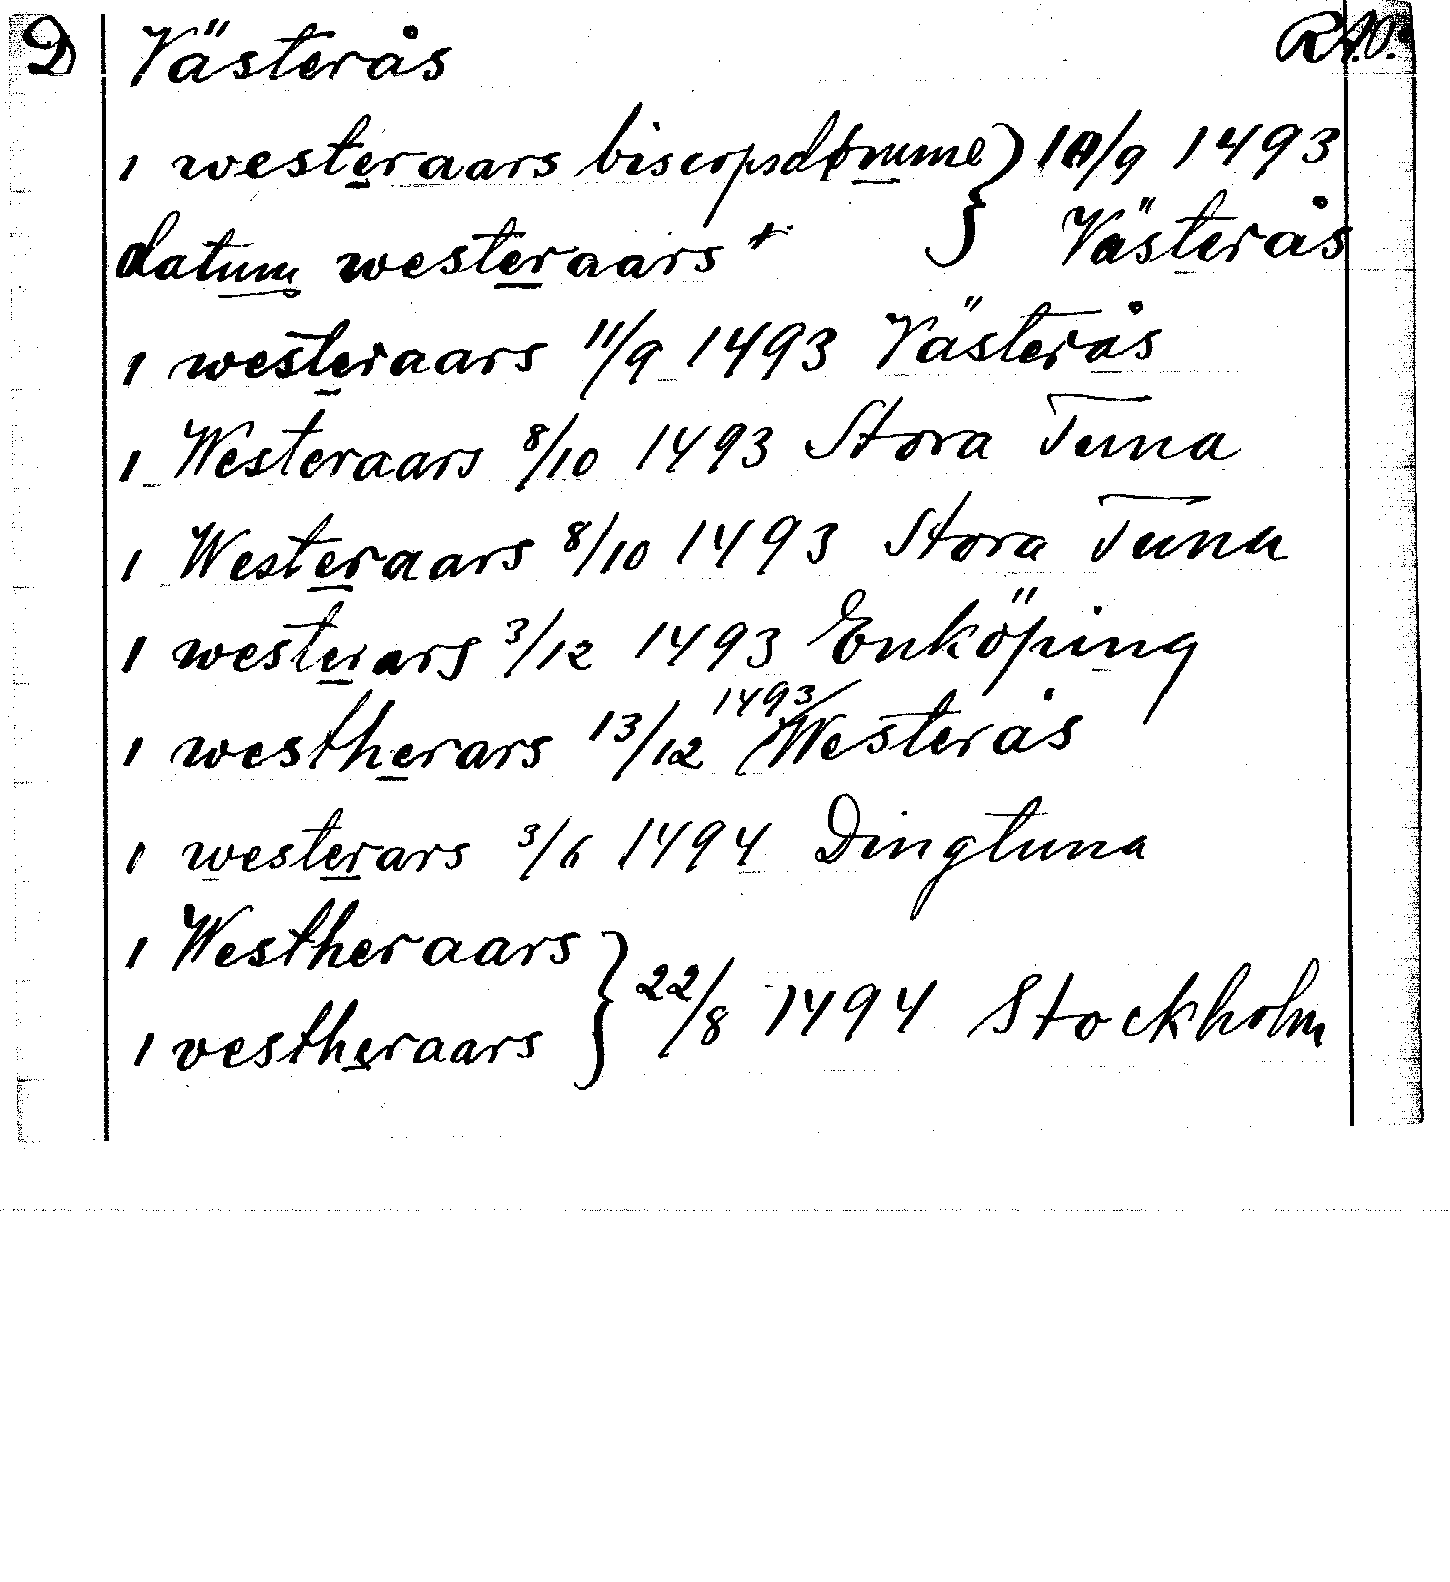 D Västerås RAP.
i westeraars biscopsdømme } 10/9 1493
datum westeraars + Västerås
i westeraars 11/9 1493 Västerås
i Westeraars 8/10 1493 Stora Tuna
i Westeraars 8/10 1493 Stora Tuna
i westerars 3/12 1493 Enköping
i westherars 13/12 1493/ Westerås
i westerars 3/6 1494 Dingtuna
i Westheraars
i vestheraars } 22/8 1494 Stockholm